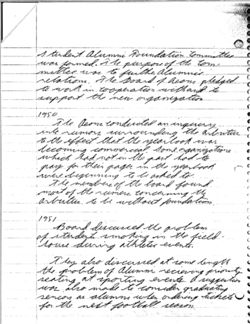 Student Alumni Foundation Committee
was formed. The purpose of the Com-
mittee was to further Alumni
relations. The Board of Aeons pledged
to work in cooperation with and to
support the new organization.
1950
The Aeons conducted an inquiry
into rumors surrounding the Arbutus
to the effect that the yearbook was
becoming commercial. Some organizations
which had not in the past had to
pay for their pages in the yearbook
were beginning to be asked to.
The members of the board found
most of the rumors concerning the
Arbutus to be without foundation.
1951
Board discussed the problem
of students smoking in the field-
house during athletic events.
They also discussed at some length
the problem of Alumni receiving priority
seating at sporting events. A suggestion
was made to consider graduating
seniors as alumni when ordering tickets
for the next football season.